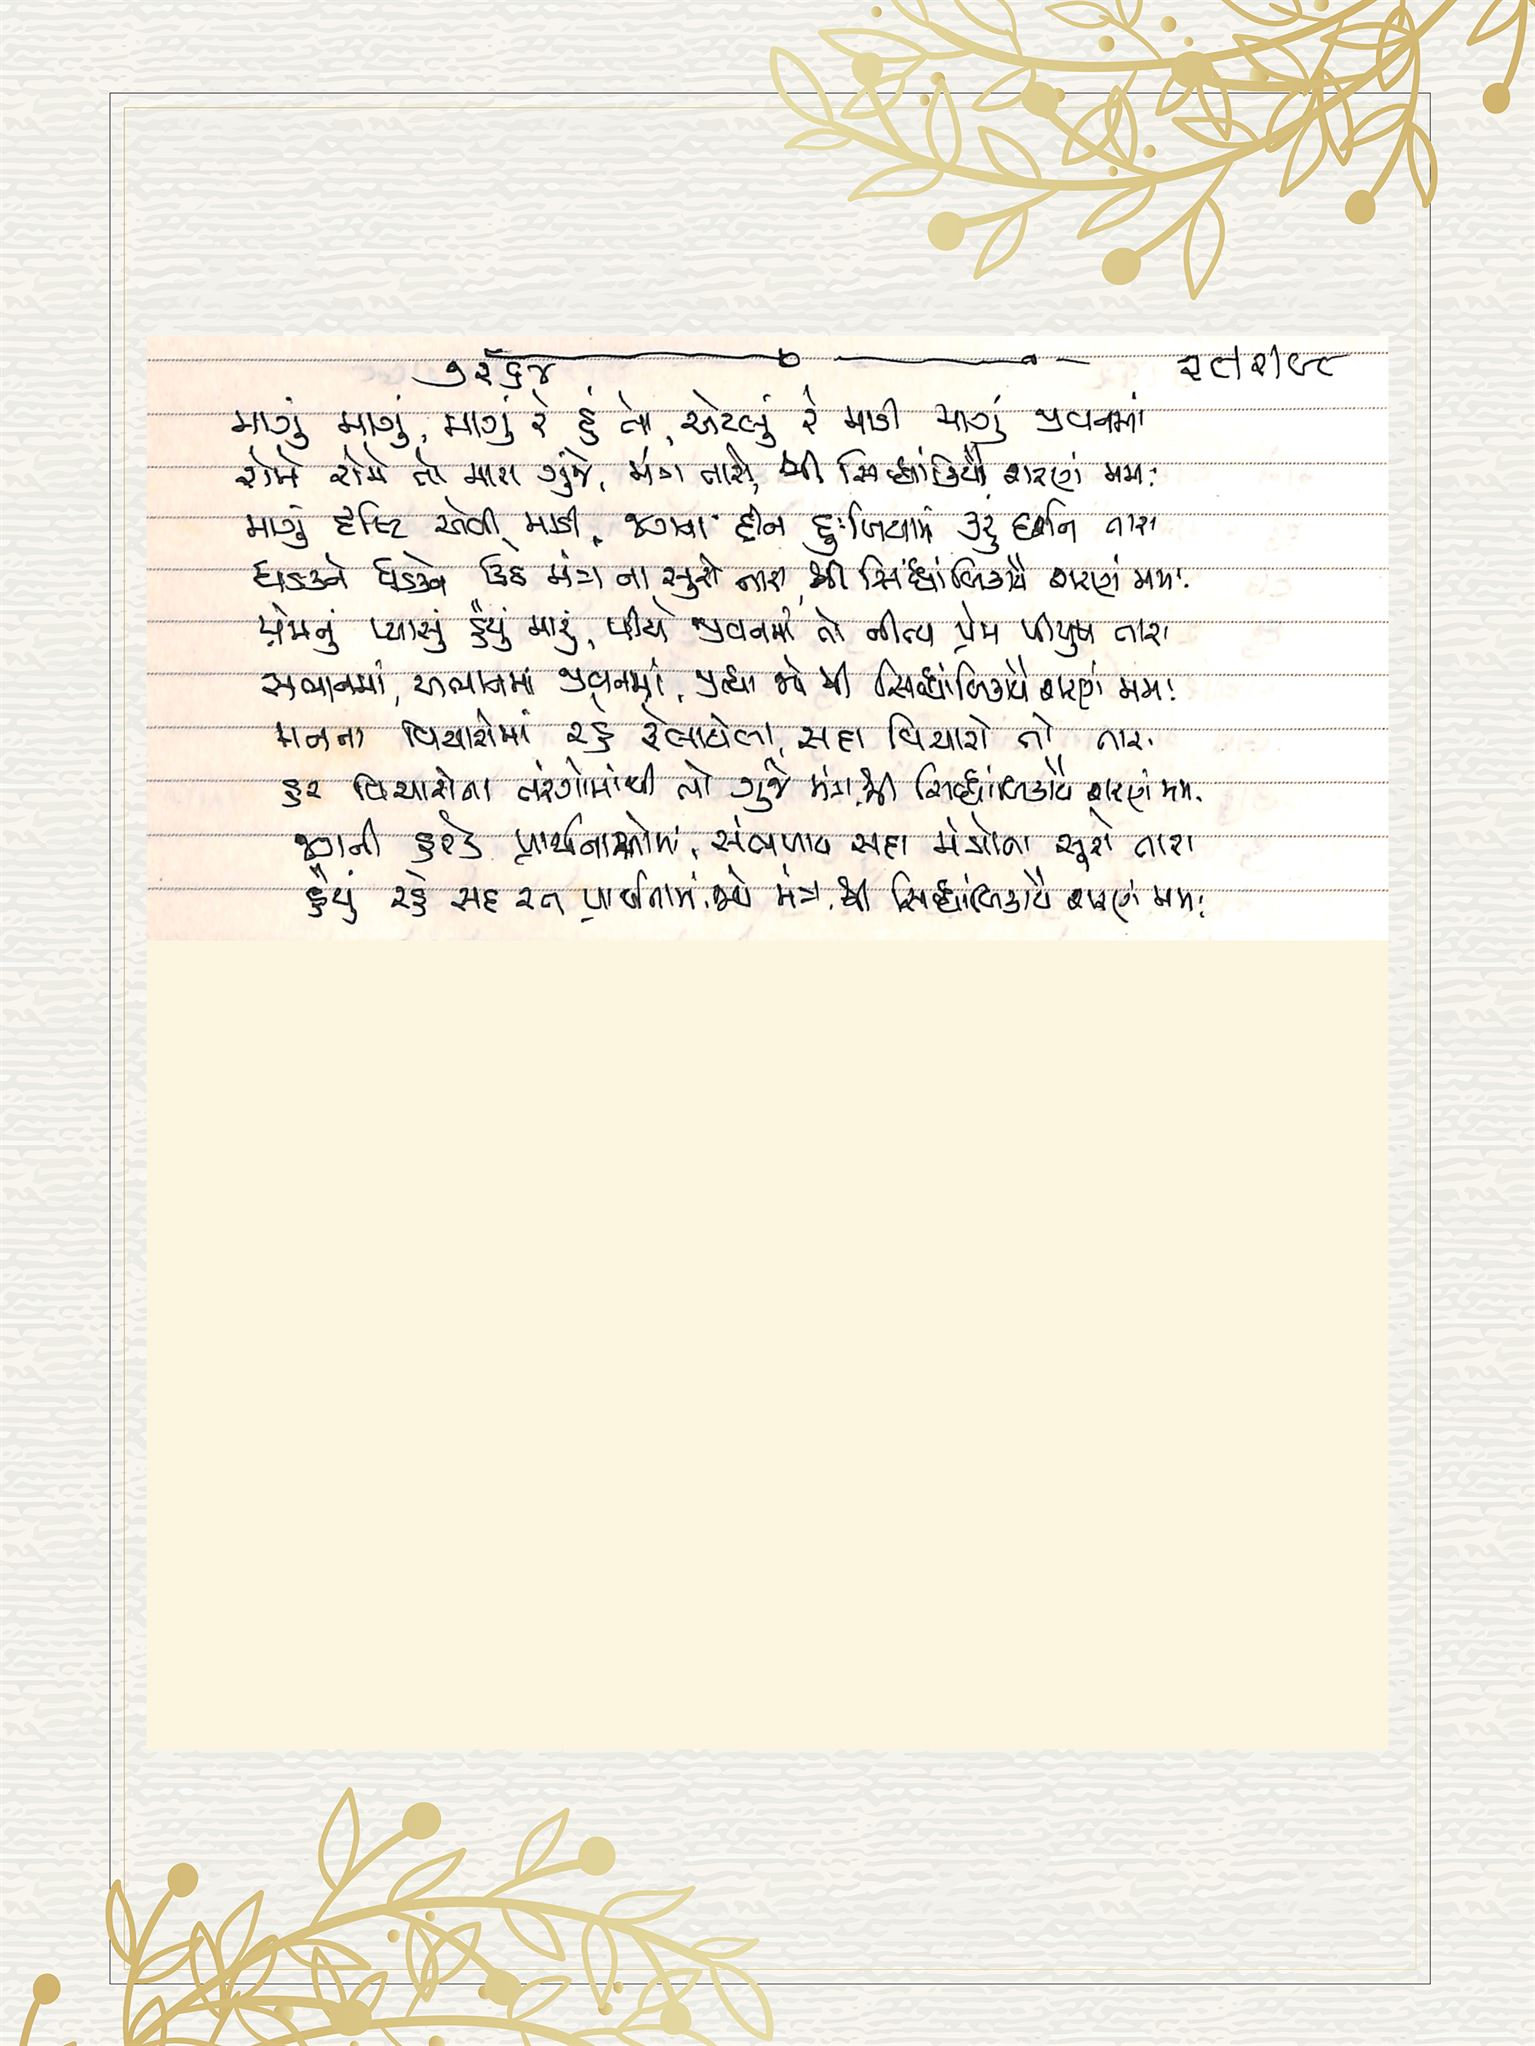 ૭૨૬૪ ૨૮/૨/૯૮
માગું માગું, માગું રે હું તો, એટલું રે માડી માગું જીવનમાં
રોમે રોમે તો મારા ગુંજે, મંત્ર તારો, શ્રી સિધ્ધાંબિકાયૈ શરણં મમઃ
માગું દૃષ્ટિ એવી માડી, જગના દીન દુઃખિયામાં કરું દર્શન તારા
ધડકને ધડકને ઉઠે મંત્ર ના સૂરો તારા, શ્રી સિધ્ધાંબિકાયૈ શરણં મમઃ
પ્રેમનું પ્યાસું હૈયું મારું, પીયે જીવનમાં તો નીત્ય પ્રેમ પીયુષ તારા
સભાનમાં, અભાનમાં જીવનમાં, શ્રી સિધ્ધાંબિકાયૈ શરણં મમઃ
મનના વિચારોમાં રહે રેલાયેલા, સદા વિચારો તો તારા
હર વિચારોના તરંગોમાંથી તો ગુંજે મંત્ર, શ્રી સિધ્ધાંબિકાયૈ શરણં મમઃ
જગની હરેક પ્રાર્થનાઓમાં, સંભળાય સદા મંત્રોના સૂરો તારા
હૈયું રહે સદા રત પ્રાર્થનામાં, જપે મંત્ર, શ્રી સિધ્ધાંબિકાયૈ શરણં મમઃ